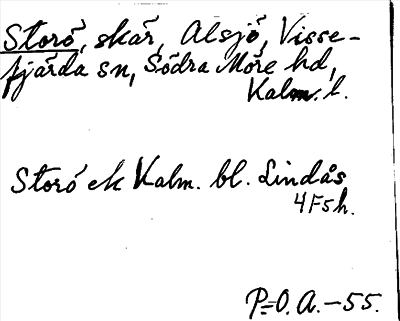 Storö, skär, Alsjö, Visse-
fjärda sn, Södra Möre hd,
Kalm. l.
Storö ek Kalm. bl. Lindås
4F5h.
P.O.A.-55.